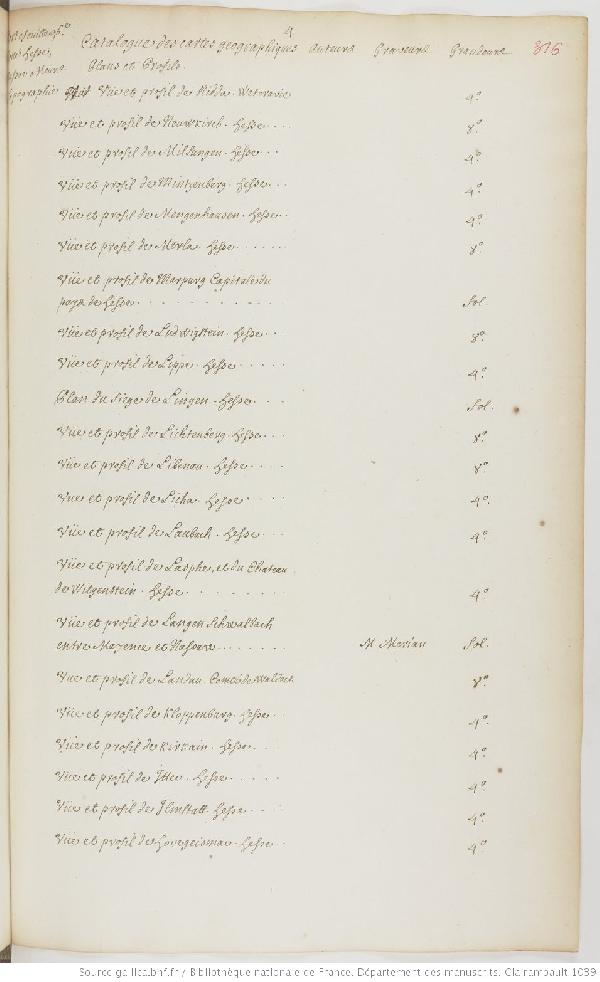 4
Catalogue des cartes geographiques Auteurs Graveurs Grandeurs 376
Plans et Profils.
Vüe et profil de Nidda. Weteravie 4°.
Vüe et profil de Neuwkirch. Hesse... 8°.
Vüe et profil de Milsungen. Hesse... 4°.
Vüe et profil de Mintzenberg. Hesse... 4°.
Vüe et profil de Mengenhausen. Hesse.. 4°.
Vüe et profil de Merla. Hesse...... 8°.
Vüe et profil de Marpurg Capitale du
pays de Hesse.......... fol.
Vüe et profil de Ludwigstein. Hesse... 8°.
Vüe et profil de Lippe. Hesse..... 4°.
Plan du siege de Lingen. Hesse.... fol.
Vüe et profil de Lichtenberg. Hesse... 8°.
Vüe et profil de Libenau. Hesse.... 8°.
Vüe et profil de Licha. Hesse.... 4°.
Vüe et profil de Laubach. Hesse... 4°.
Vüe et profil de Lasphe, et du Chateau
de Witgenstein. Hesse........ 4°.
Vüe et profil de Langen Schwalbach
entre Mayence et Nassau....... M Merian fol.
Vüe et profil de Landau. Comté de Waldeck 8°.
Vüe et profil de Kloppenburg. Hesse.. 4°.
Vüe et profil de Kirxain. Hesse... 4°.
Vüe et profil de Itter. Hesse..... 4°.
Vüe et profil de Ilmstatt. Hesse... 4°.
Vüe et profil de Hovegeismar. Hesse.. 4°.
Source gallica.bnf.fr / Bibliothèque nationale de France. Département des manuscrits. Clairambault 1039